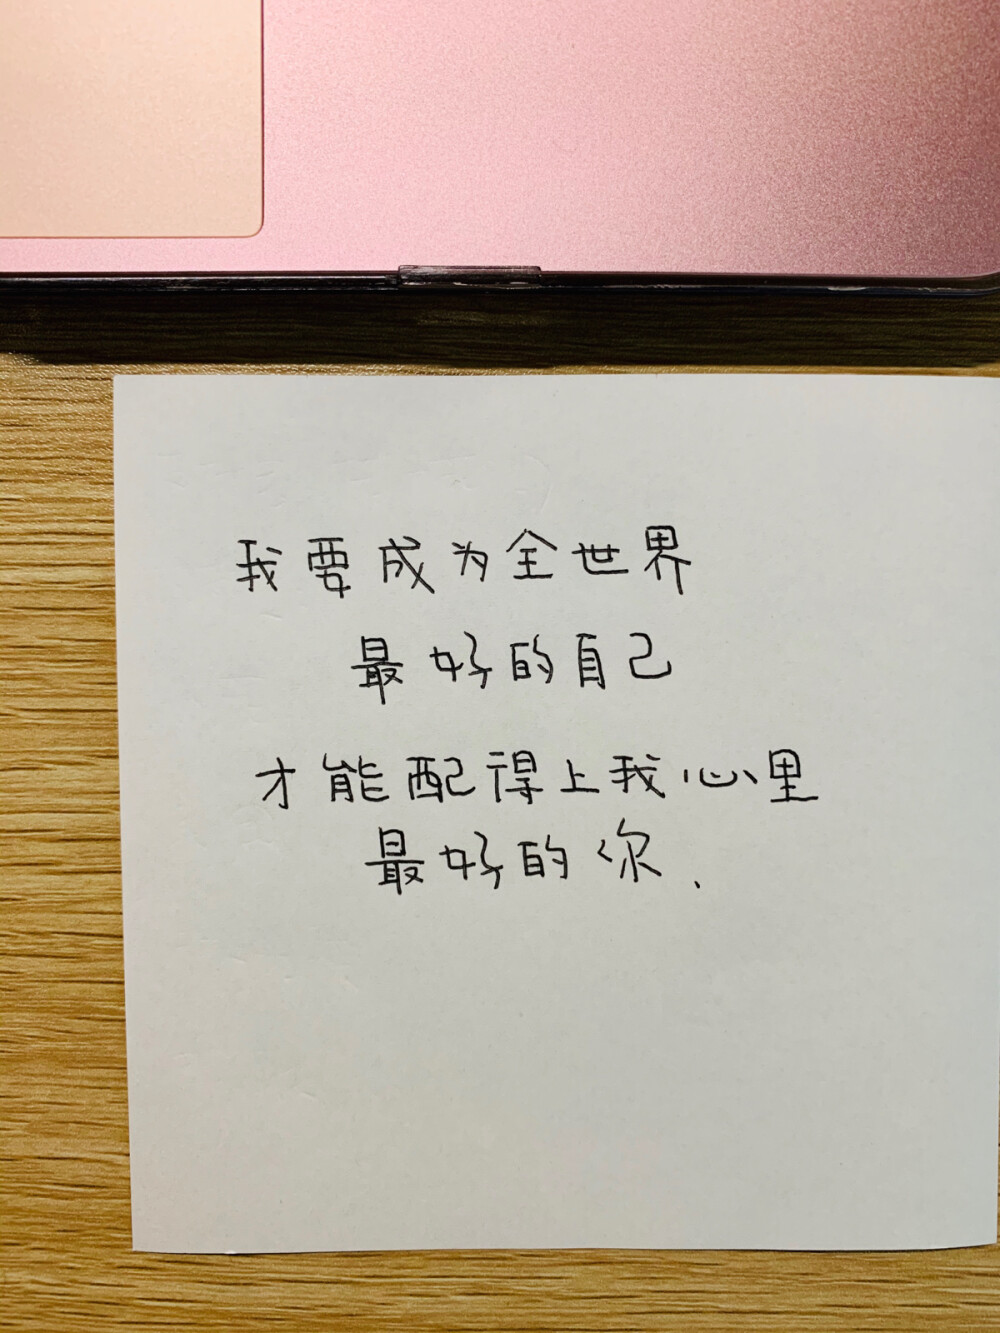 我要成为全世界
最好的自己
才能配得上我心里
最好的你、